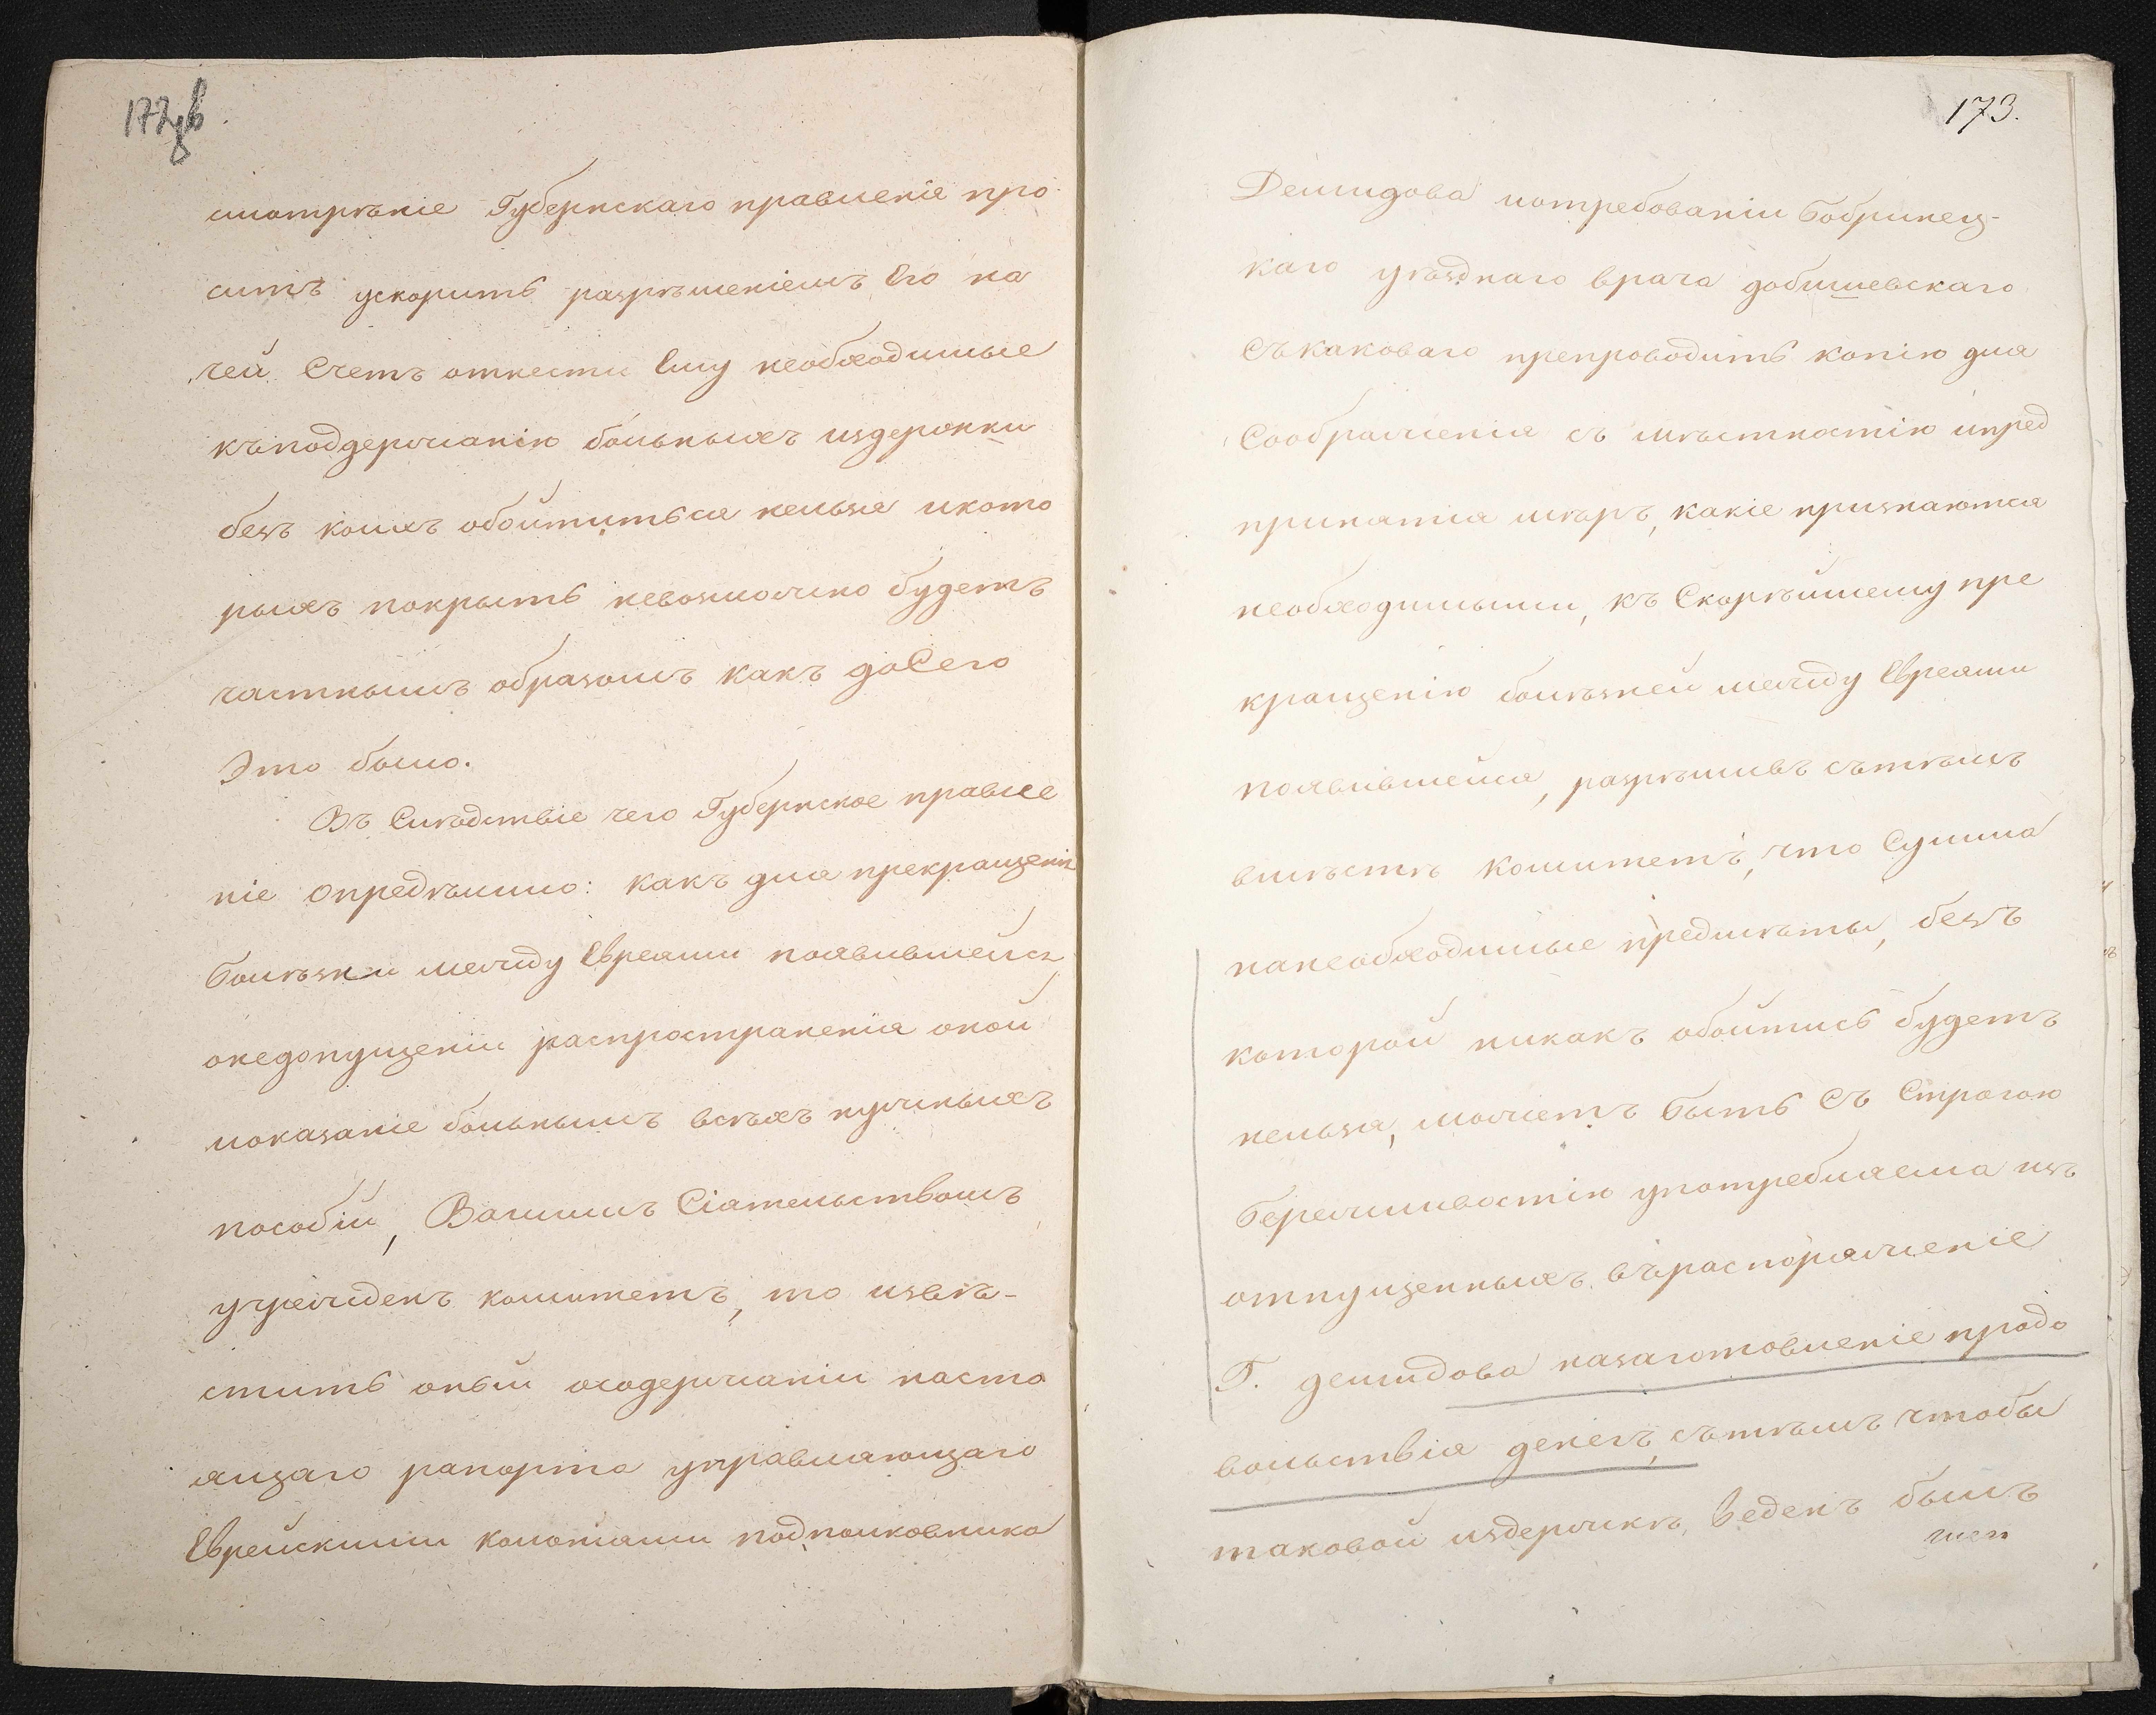 172 об
смотрѣніе Губернскаго правленія про
ситъ ускорить разрѣшеніемъ Его на
чей Счетъ отнести Ему необходимые
къподдержанію больныхъ издержки
безъ коихъ обойтиться нельзя икото
рыхъ покрыть невозможно будетъ
частнымъ образомъ какъ доСего
Это было.
Въ Слѣдствіе чего Губернское правле
ніе опредѣлило: какъ для прекращенія
болѣзни между Евреями появившейся,
онедопущеніи распространенія оной
иоказаніе больнымъ всѣхъ нужныхъ
пособій, Вашимъ Сіятельствомъ
учрежденъ комитетъ, то извѣ-
стить оный осодержаніи насто
ящаго рапорта управляющаго
Еврейскими колоніями подполковника
173.
Демидова иотребованіи бобринец-
каго уѣзднаго врача добишевскаго
Съкаковаго препроводить копію для
Соображенія съ мѣстностію ипред
принятія мѣръ, какіе признаются
необходимыми, къ Скорѣйшему пре
кращенію болѣзней между Евреями
появившейся, разрѣшивъ сътѣмъ
вмѣстѣ комитетъ, что Сумма
нанеобходимые предмѣты, безъ
которой никакъ обойтись будетъ
нельзя, можетъ быть Съ Строгою
бережливостію употребляема изъ
отпущенныхъ въраспоряженіе
Г. демидова назаготовленіе продо
вольствія денегъ, сътѣмъ чтобы
таковой издержкѣ, веденъ былъ